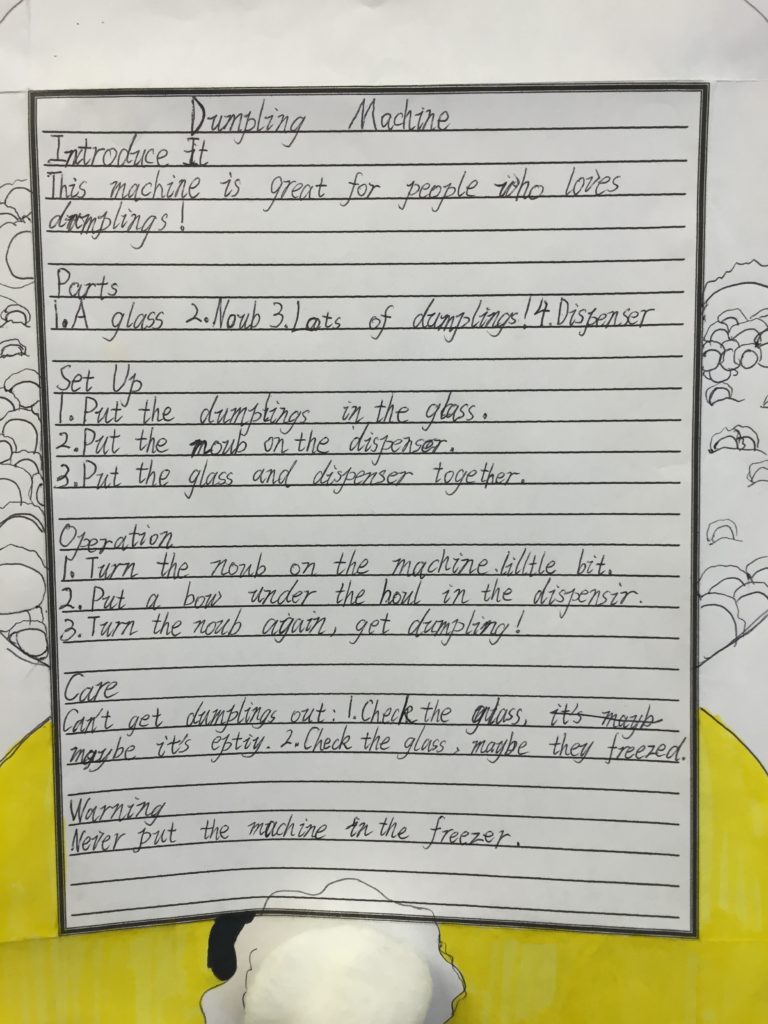 Dumpling Machine
Introduce It
This machine is great for people who loves
dumplings!
Parts
1.A glass 2.Noub 3.Loats of dumplings! 4.Dispenser
Set Up
1.Put the dumptings in the glass.
2.Put the noub on the dispenser.
3.Put the glass and dispenser together.
Operation
1. Turn the noub on the machine. lilltle bit.
2. Put a bow under the houl in the dispensir.
3. Turn the noub again, get dumpling!
Care
Can't get dumplings out: 1.Check the glass, it's mayb
maybe it's eptiy. 2.Check the glass, maybe they freezed.
Warning
Never put the machine in the freezer.